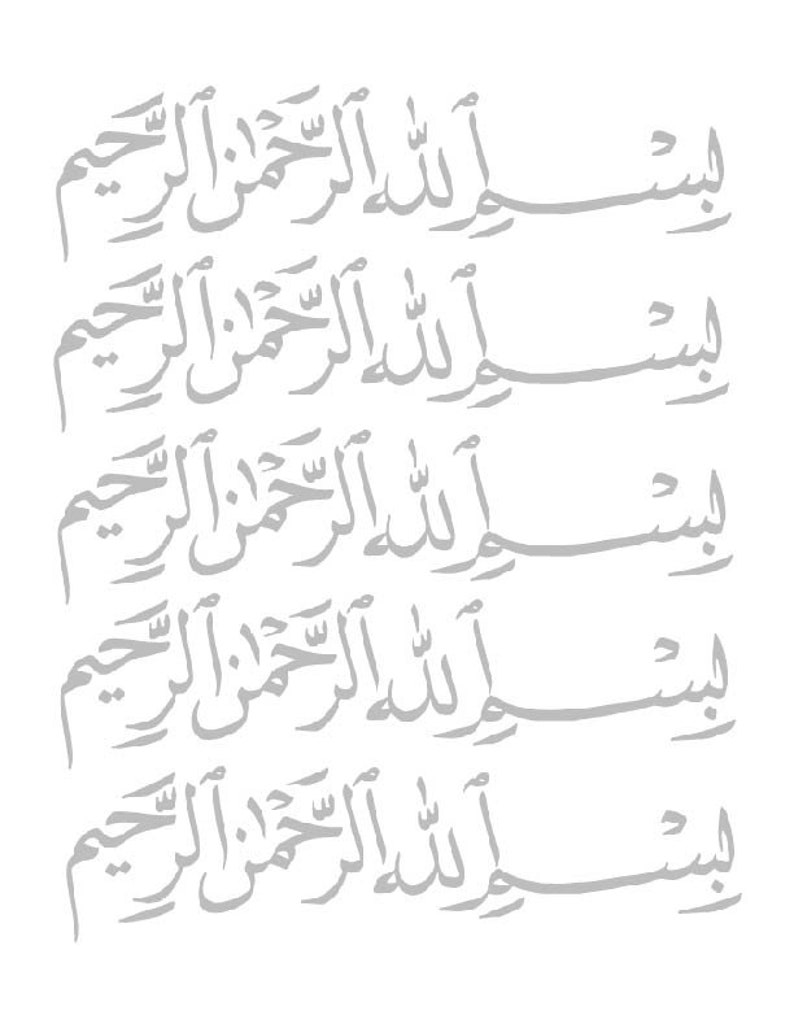 بِسْمِ ٱللَّهِ ٱلرَّحْمَٰنِ ٱلرَّحِيمِ
بِسْمِ ٱللَّهِ ٱلرَّحْمَٰنِ ٱلرَّحِيمِ
بِسْمِ ٱللَّهِ ٱلرَّحْمَٰنِ ٱلرَّحِيمِ
بِسْمِ ٱللَّهِ ٱلرَّحْمَٰنِ ٱلرَّحِيمِ
بِسْمِ ٱللَّهِ ٱلرَّحْمَٰنِ ٱلرَّحِيمِ